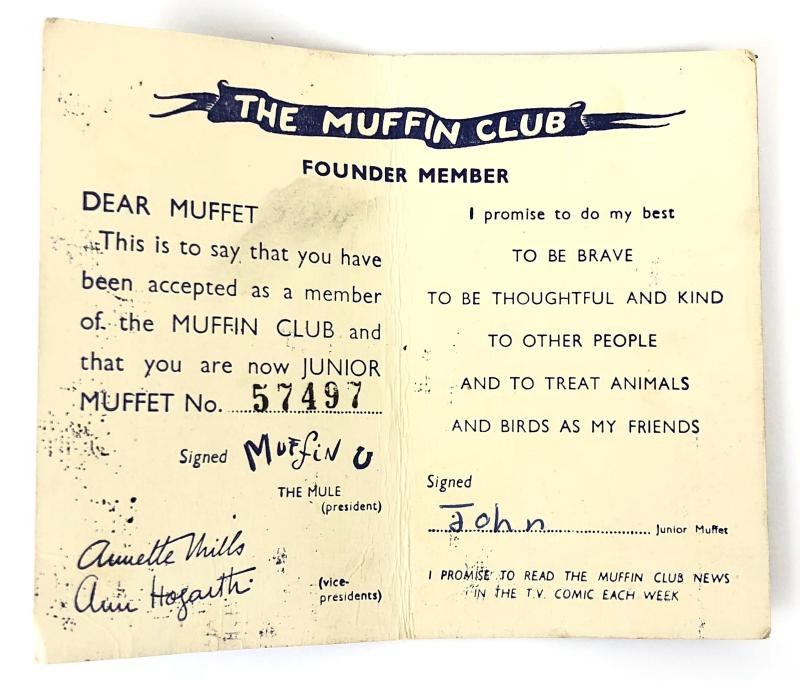 THE MUFFIN CLUB
FOUNDER MEMBER
DEAR MUFFET
This is to say that you have
been accepted as a member
of the MUFFIN CLUB and
that you are now JUNIOR
MUFFET No. 57497
Signed Muffin
THE MULE
(president)
Annette Mills
Ann Hogarth
(vice-
presidents)
I promise to do my best
TO BE BRAVE
TO BE THOUGHTFUL AND KIND
TO OTHER PEOPLE
AND TO TREAT ANIMALS
AND BIRDS AS MY FRIENDS
Signed
John Junior Muffet
I PROMISE TO READ THE MUFFIN CLUB NEWS
IN THE T.V. COMIC EACH WEEK